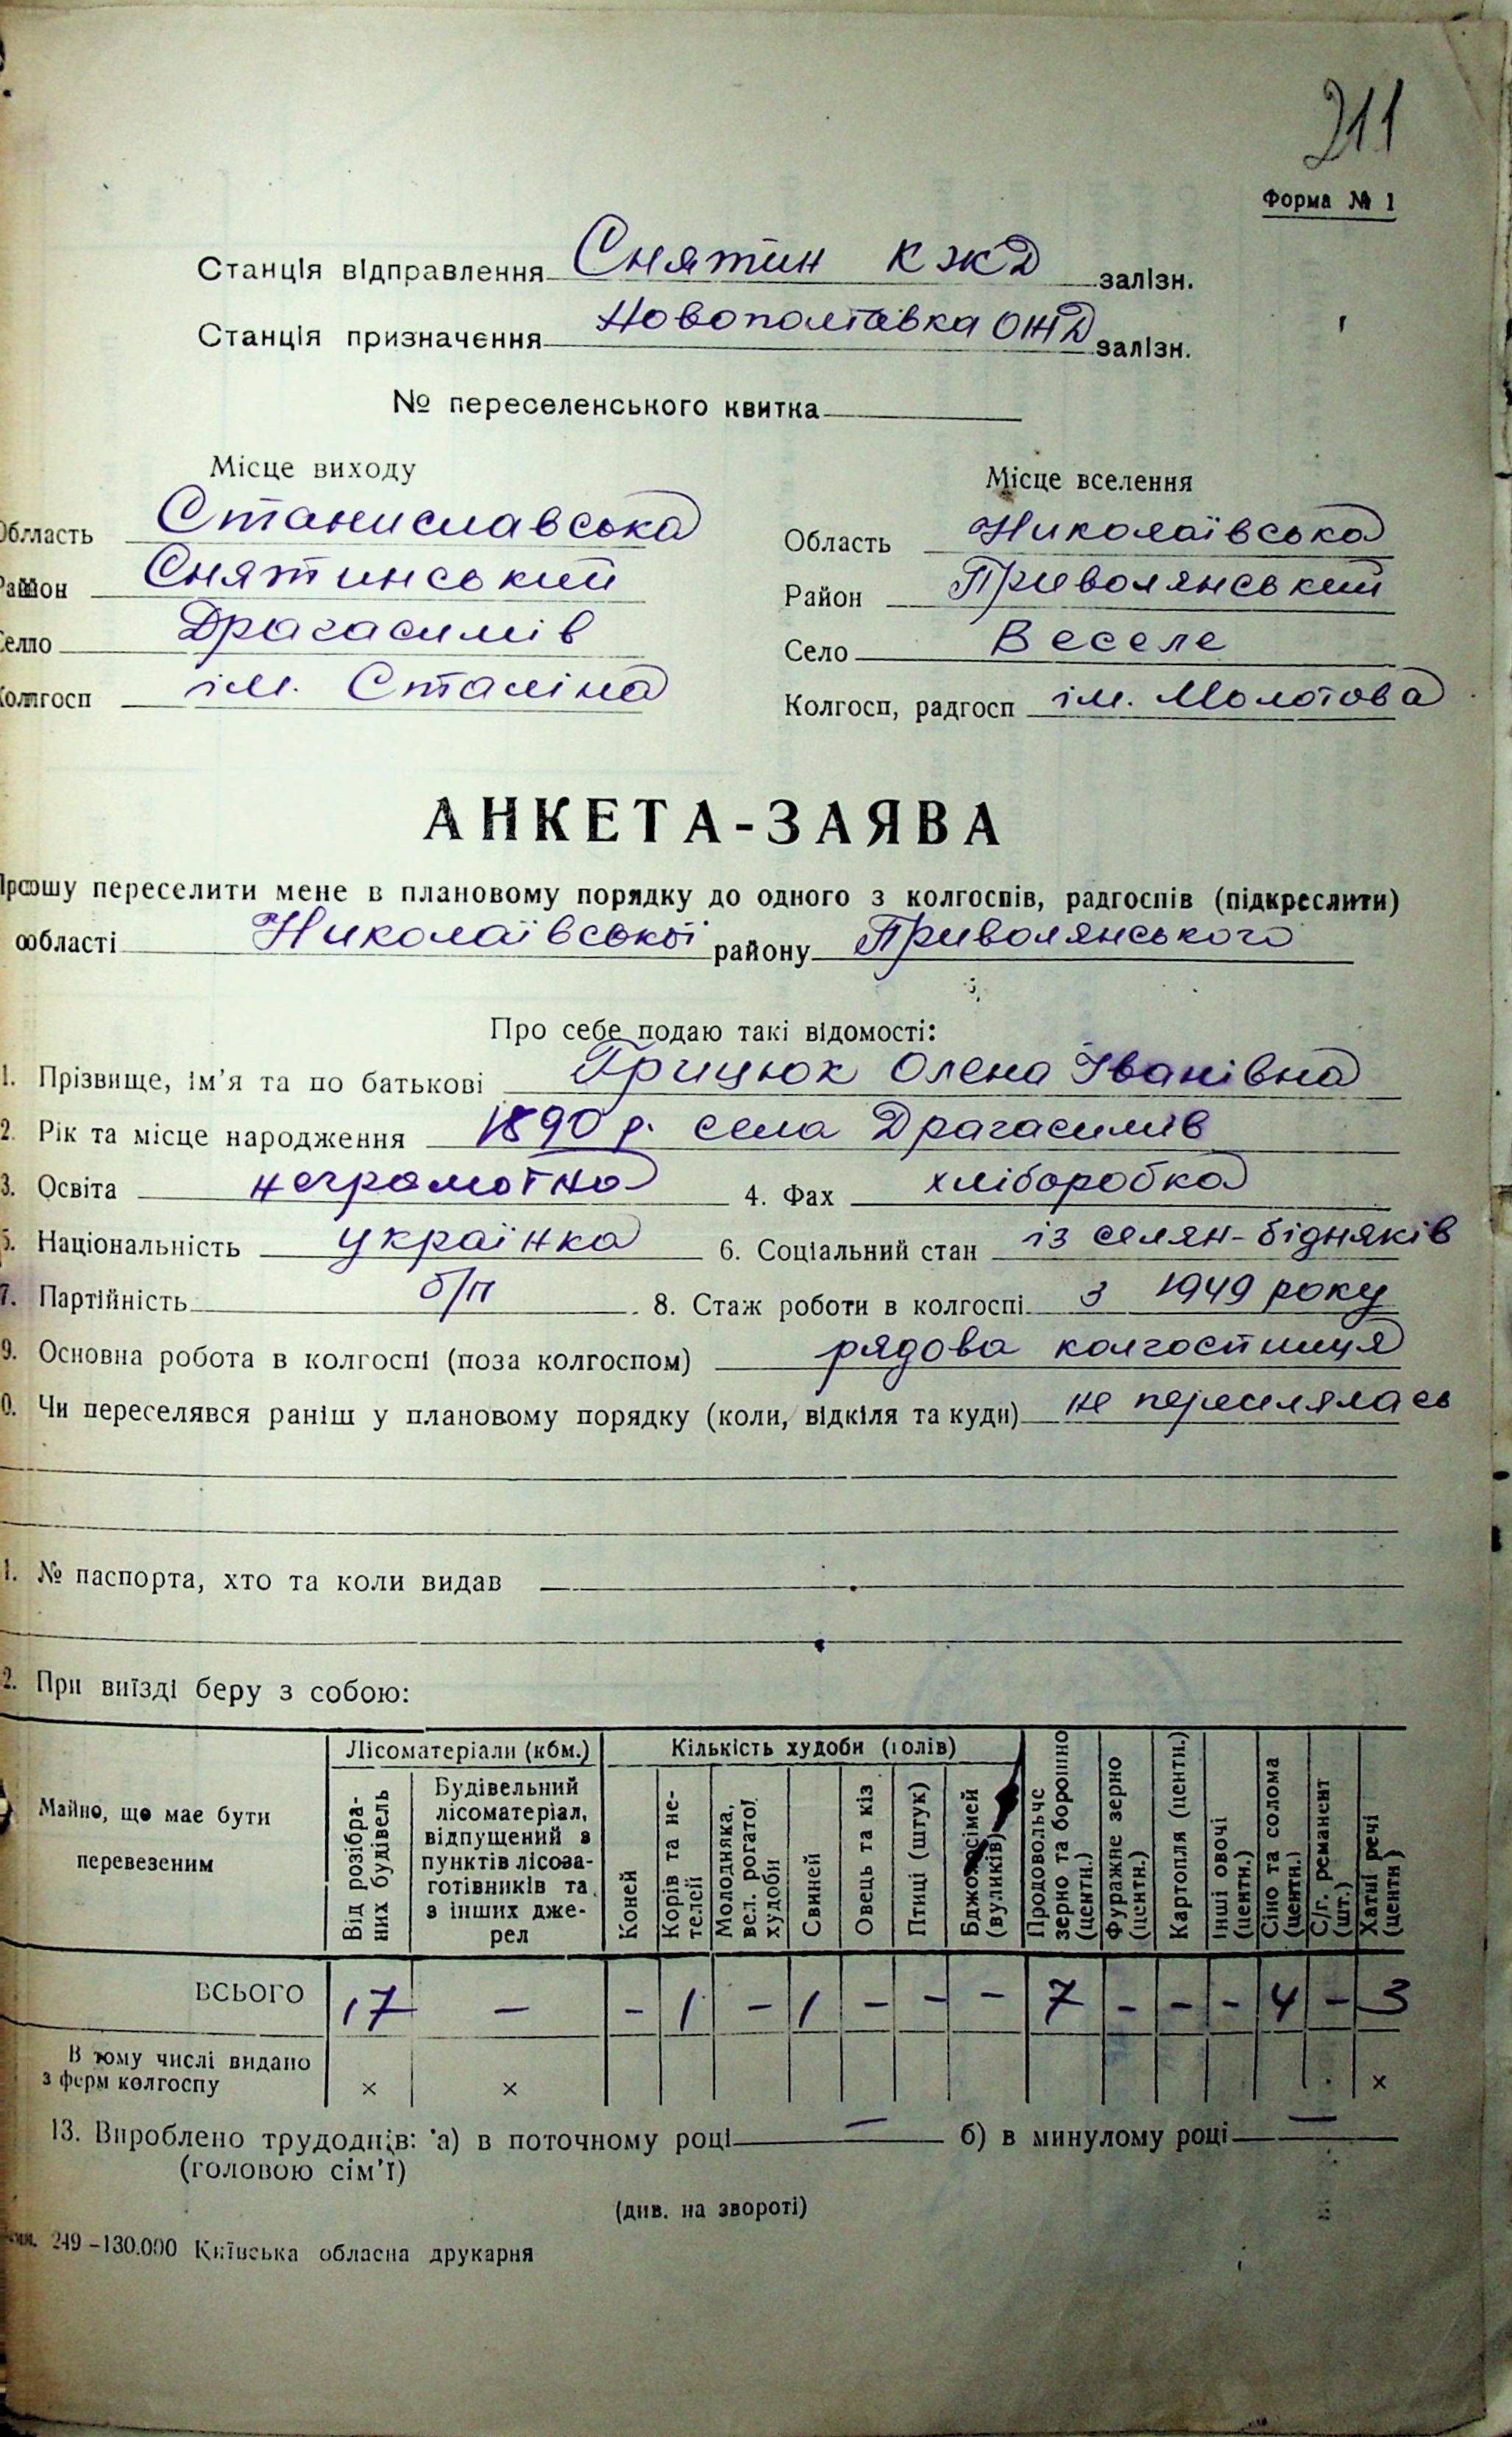 211
Форма № 1
Станція відправлення Снятин КЖД залізн.
Станція призначення Новополтавка ОЖД залізн.
№ переселенського квитка
Місце виходу Місце вселення
Область Станиславська Область Николаївська
Район Снятинський Район Приволянський
Село Драгасимів Село Веселе
Колгосп ім. Сталіна Колгосп, радгосп ім. Молотова
АНКЕТА-ЗАЯВА
Прошу переселити мене в плановому порядку до одного з колгоспів, радгоспів (підкреслити)
області Николаївської району Приволянського
Про себе подаю такі відомості:
1. Прізвище, ім'я та по батькові Грицюк Олена Іванівна
2. Рік та місце народження 1890 р. села Драгасимів
3. Освіта неграмотна 4. Фах хліборобка
5. Національність українка 6. Соціальний стан із селян-бідняків
7. Партійність б/п 8. Стаж роботи в колгоспі з 1949 року
9. Основна робота в колгоспі (поза колгоспом) рядова колгоспниця
0. Чи переселявся раніш у плановому порядку (коли, відкіля та куди) не переселялась
1. № паспорта, хто та коли видав —
2. При виїзді беру з собою:
Майно, що має бути перевезеним
Лісоматеріали (кбм.)
Від розібраних будівель
Будівельний лісоматеріал, відпущений з пунктів лісозаготівників та з інших джерел
Кількість худоби (голів)
Коней
Корів та нетелей
Молодняка, вел. рогатої худоби
Свиней
Овець та кіз
Птиці (штук)
Бджолосімей (вуликів)
Продовольче зерно та борошно (центн.)
Фуражне зерно (центн.)
Картопля (центн.)
Інші овочі (центн.)
Сіно та солома (центн.)
С/г. реманент (шт.)
Хатні речі (центн.)
ВСЬОГО 17 — - 1 - 1 - - - 7 - - - 4 - 3
В тому числі видано
з ферм колгоспу × × ×
13. Вироблено трудоднів: а) в поточному році — б) в минулому році —
(головою сім'ї)
(див. на звороті)
249–130.000 Київська обласна друкарня